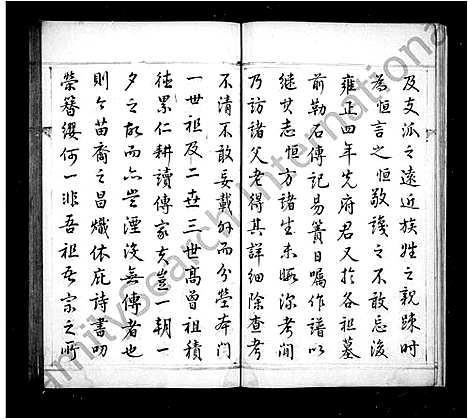 及支派之遠近族姓之親踈時
為恒言之恒敬識之不敢忘後
雍正四年先府君又於各祖墓
前勒石傳記易簀日囑作譜以
継其志恒方諸生未暇深考間
乃訪諸父老得其詳細除查考
不清不敢妄載外而分塋本門
一世祖及二世三世高曾祖積
德累仁耕讀傳家亥豈一朝一
夕之故而亦豈湮沒無傳者也
則今苗裔之昌熾休庇詩書叨
榮簪纓何一非吾祖吾宗之所
FamilySearch International